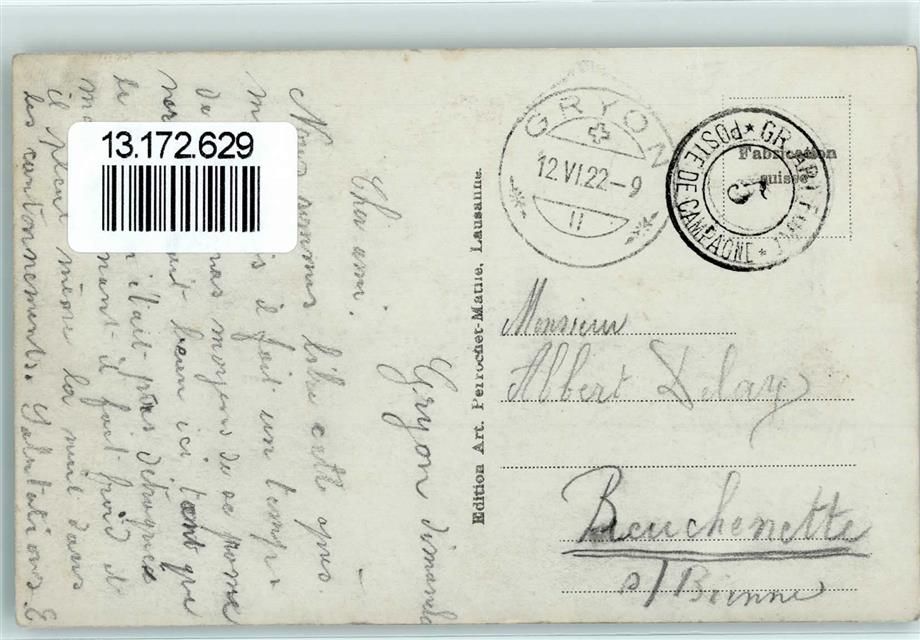 Gryon dimanche
Cher ami.
Nous sommes libre cette après
mais il fait un temps
de pas moyen de se prome
ner tant que
le était pas détraqué
maintenant il fait froid et
il pleut même la nuit dans
les cantonnements. Salutations. E
13.172.629
Edition Art. Perrochet-Matile, Lausanne.
GRYON
12.VI.22-9
II
★ GR. ART. FORT. ★ POSTE DE CAMPAGNE
5
Fabrication
suisse
Monsieur
Albert Delay
Reuchenette
s/ Bienne